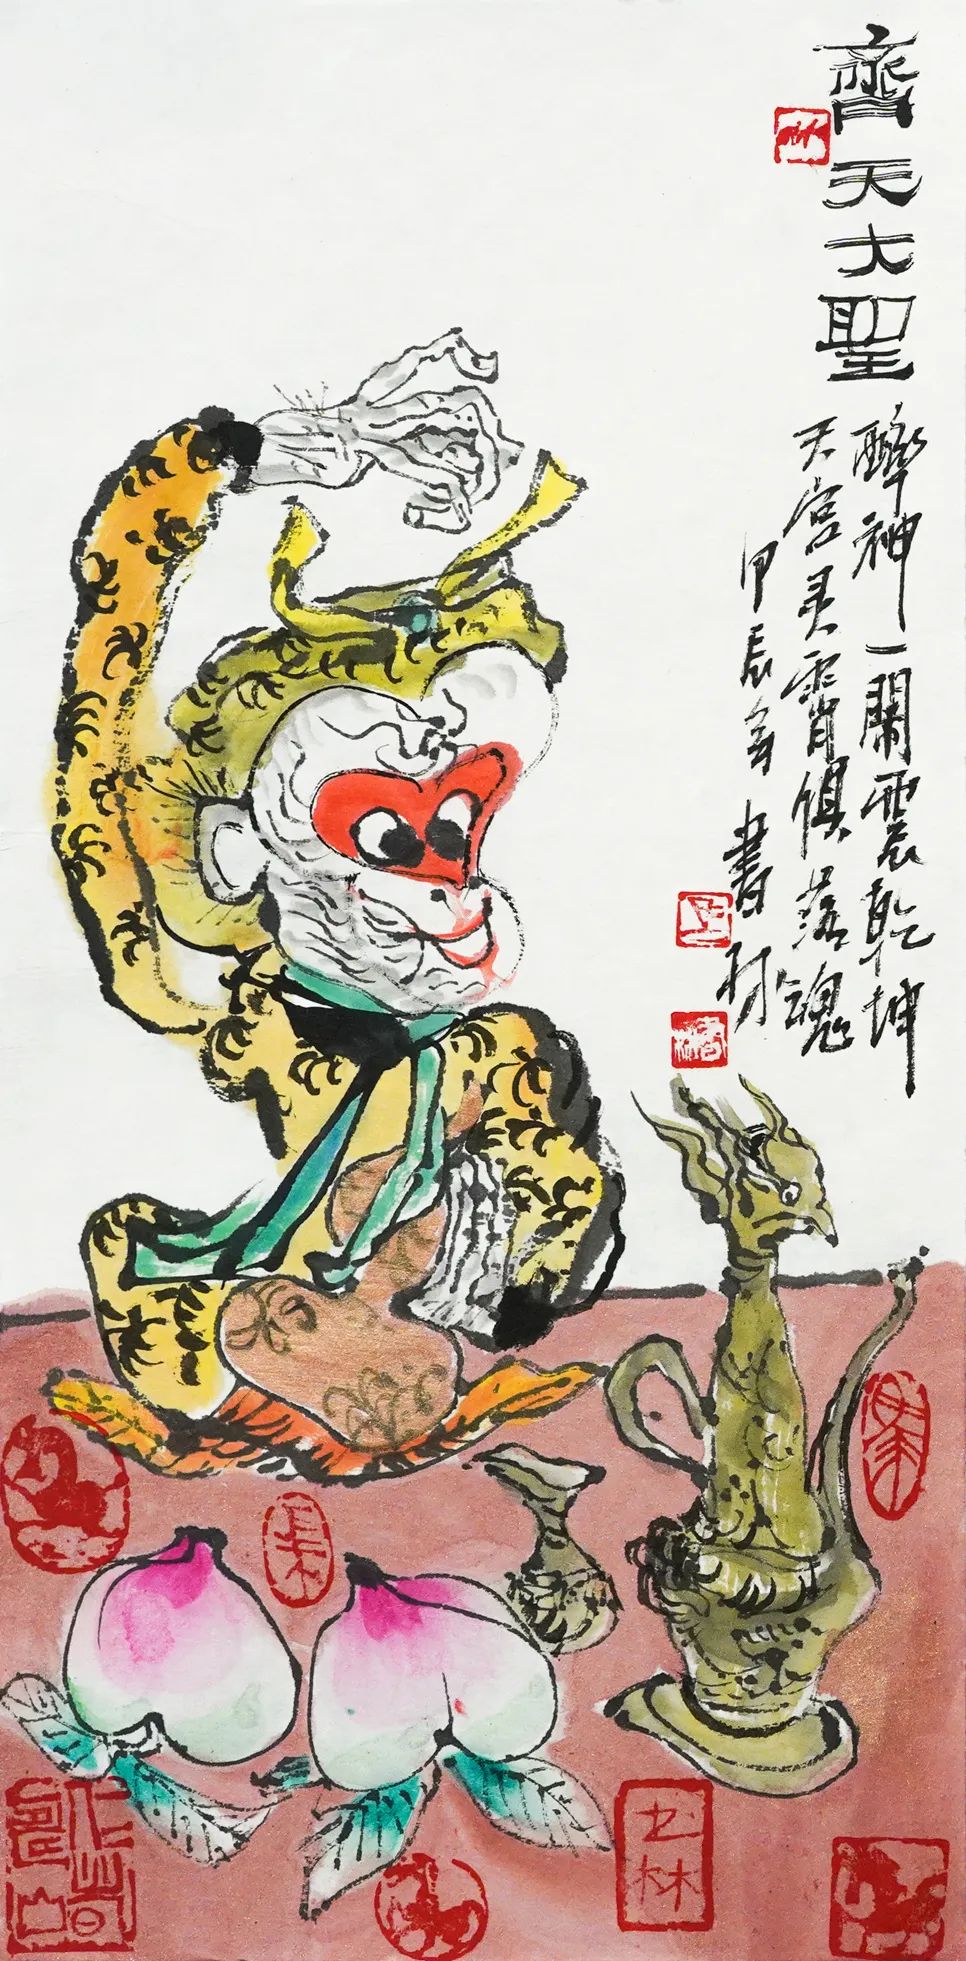 齊天大聖
醉神一闹震乾坤
天宫灵霄惧落魂
甲辰年
書林
书林